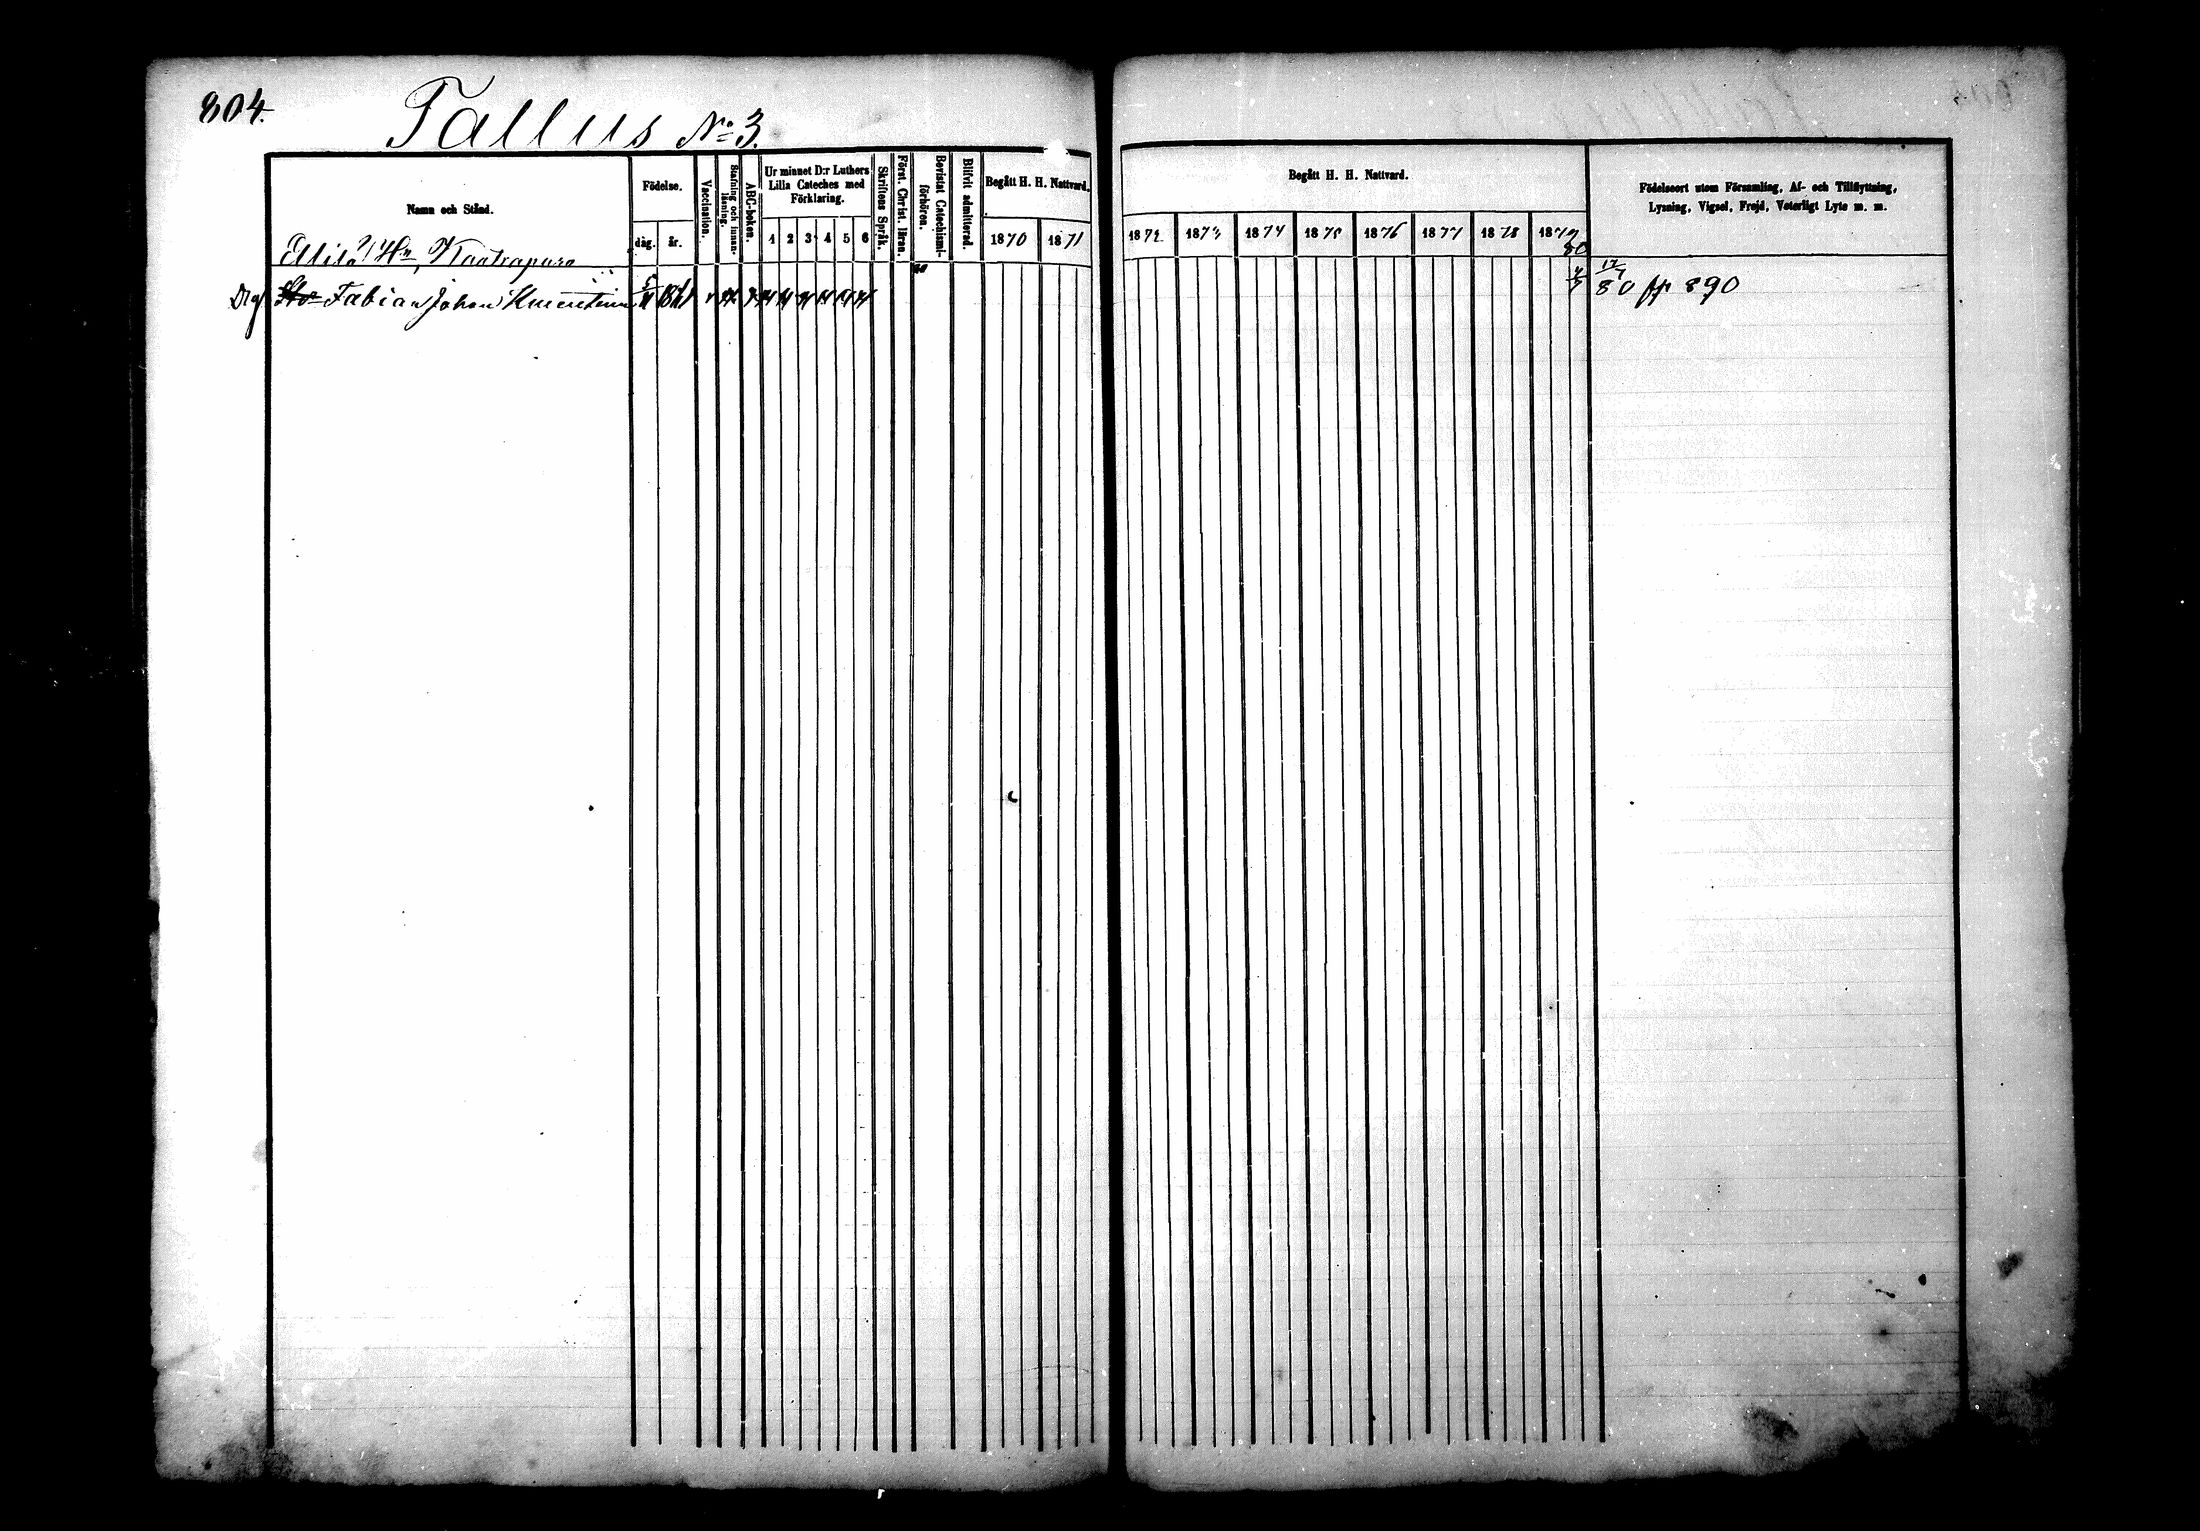 804.
Tallus No 3.
Namn och Stånd.
Födelse.
dåg.
år.
Vaccination.
Stafning och innan-
läsning.
ABC-boken.
Ur minnet D:r Luthers
Lilla Cateches med
Förklaring.
1 2 3 4 5 6
Skriftens Språk.
Först. Christ. läran.
Bevistat Catechismi-
förhören.
Blifvit admitterad.
Begått H. H. Nattvard.
1870 1871
Begått H. H. Nattvard.
1872 1873 1874 1875 1876 1877 1878 1879
80
Födelseort utom Församling, Af- och Tillflyttning,
Lysning, Vigsel, Frejd, Veterligt Lyte m. m.
Drg Fabian Johan
17/7
80 fr 890